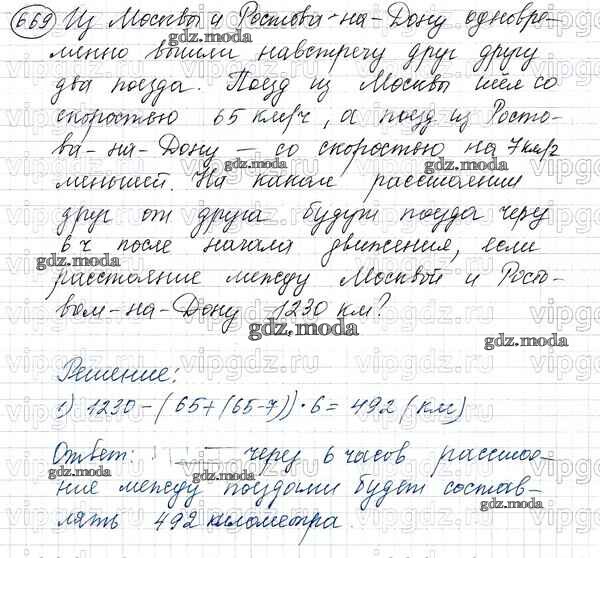 669 Из Москвы и Ростова-на-Дону одновре-
менно вышли навстречу друг другу
два поезда. Поезд из Москвы шёл со
скоростью 65 км/ч, а поезд из Росто-
ва-на-Дону – со скоростью на 7 км/ч
меньшей. На каком расстоянии
друг от друга будут поезда через
6 ч после начала движения, если
расстояние между Москвой и Росто-
вом-на-Дону 1230 км?
Решение:
1) 1230-(65+(65-7))·6=492 (км)
Ответ: через 6 часов расстоя-
ние между поездами будет состав-
лять 492 километра.
gdz.moda
gdz.moda
gdz.moda
gdz.moda
gdz.moda
gdz.moda
gdz.moda
gdz.moda
gdz.moda
vipgdz.ru